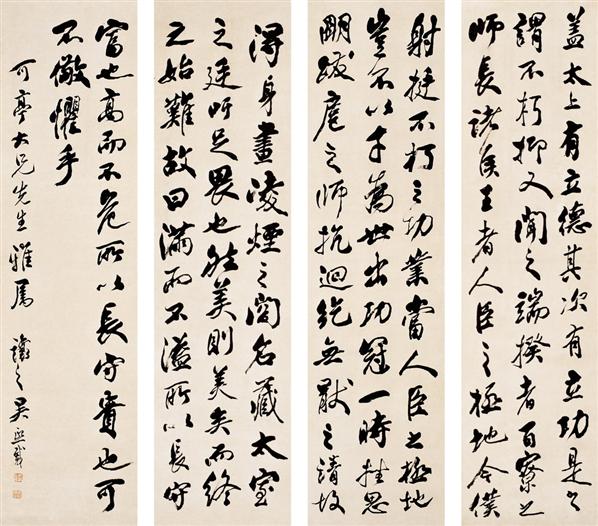 盖太上有立德其次有立功是之
謂不朽抑又聞之端揆者百寮之
師長諸侯王者人臣之極地今僕
射挺不朽之功業當人臣之極地
豈不以才為世出功冠一時挫思
明跋扈之師抗迴紇無猒之請故
得身畫淩煙之閣名藏太室
之廷吁足畏也然美則美矣而終
之始難故曰滿而不溢所以長守
富也高而不危所以長守貴也可
不儆懼乎
可亭大兄先生雅屬 讓之吳熙載